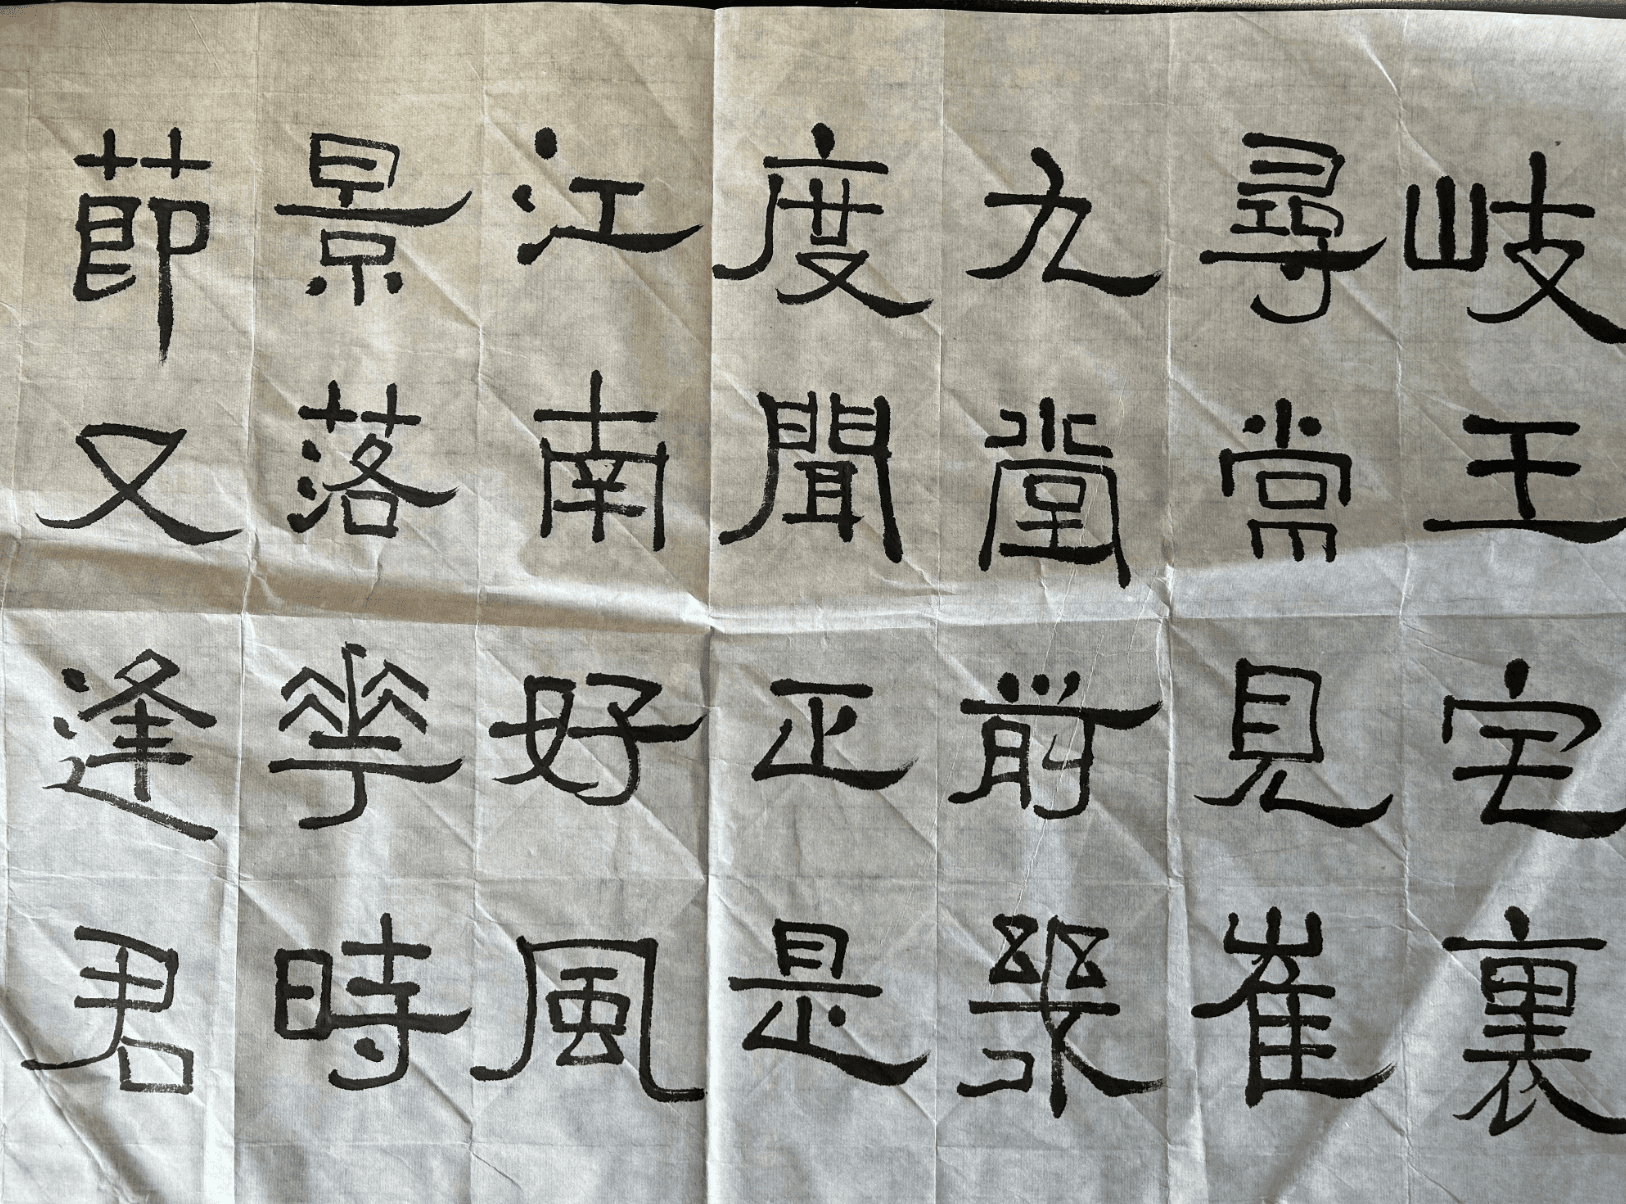 岐王宅裏
尋常見崔
九堂前幾
度聞正是
江南好風
景落華時
莭又逢君